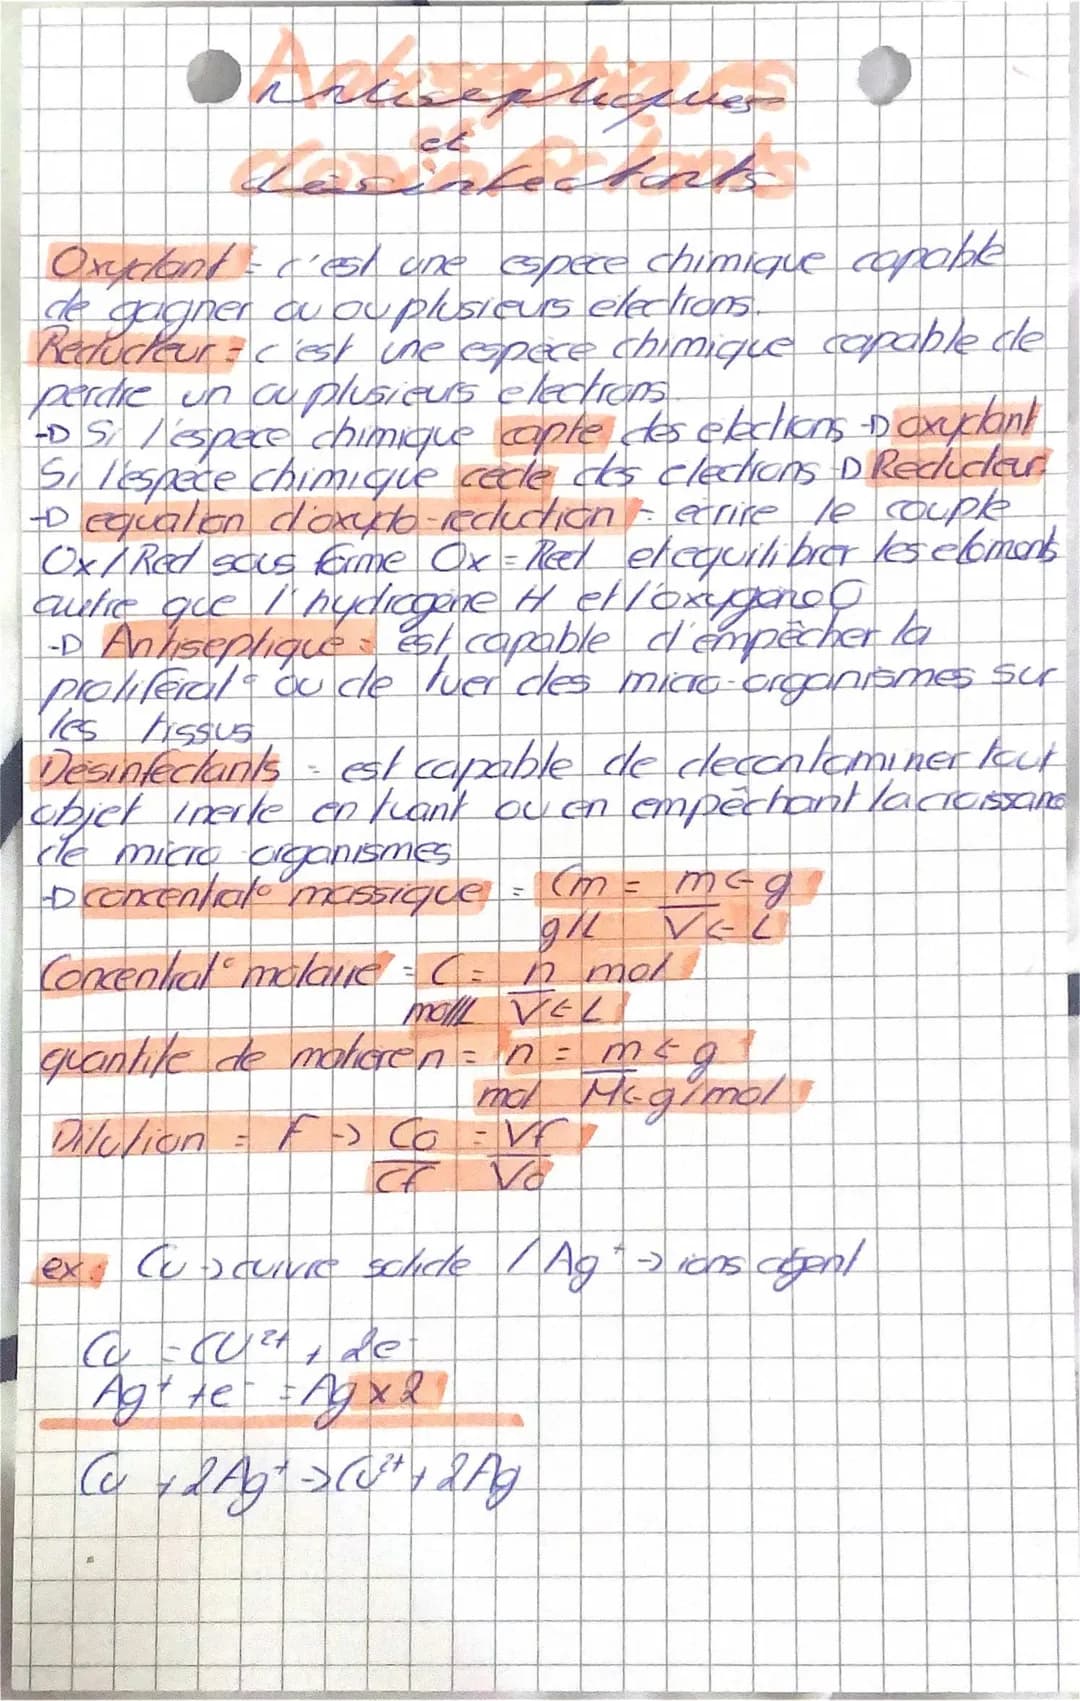 Antiseptiques
et
désinfectants
Oxydant = c'est une espece chimique capable
de gagner ou ou plusieurs électrons.
Reducteur = c'est une espèce chimique capable de
perdre un ou plusieurs electrons.
→ Si l'espece chimique capte des electrons → oxydant
Si l'espece chimique cède des electrons → Reducteur
→ equation d'oxydo-reduction = ecrire le couple
Ox/Red sous forme Ox = Red et equilibrer les elements
autre que l'hydrogène H et l'oxygène O
→ Antiseptique = est capable d'empêcher la
proliférat° ou de tuer des micro-organismes sur
les tissus
Desinfectants = est capable de decontaminer tout
objet inerte en tuant ou en empêchant la croissance
de micro organismes
→ concentrat° massique = Cm = m ← g
g/L V ← L
Concentrat° molaire = C = n mol
mol/L V ← L
quantite de matiere n = n = m ← g
mol M ← g/mol
Dilution = F → Co = Vf
Cf Vo
ex: Cu → cuivre solide / Ag⁺ → ions argent
Cu = Cu²⁺ + 2e⁻
Ag⁺ + e⁻ = Ag x 2
Cu + 2Ag⁺ → Cu²⁺ + 2Ag